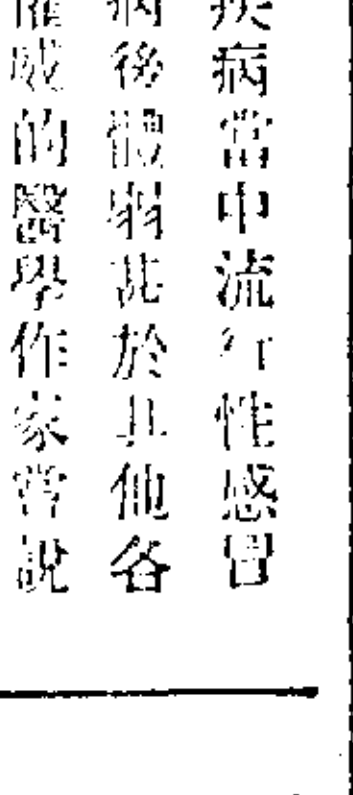 疾病當中流行性感冒
病後體弱甚於其他各
權威的醫學作家嘗說